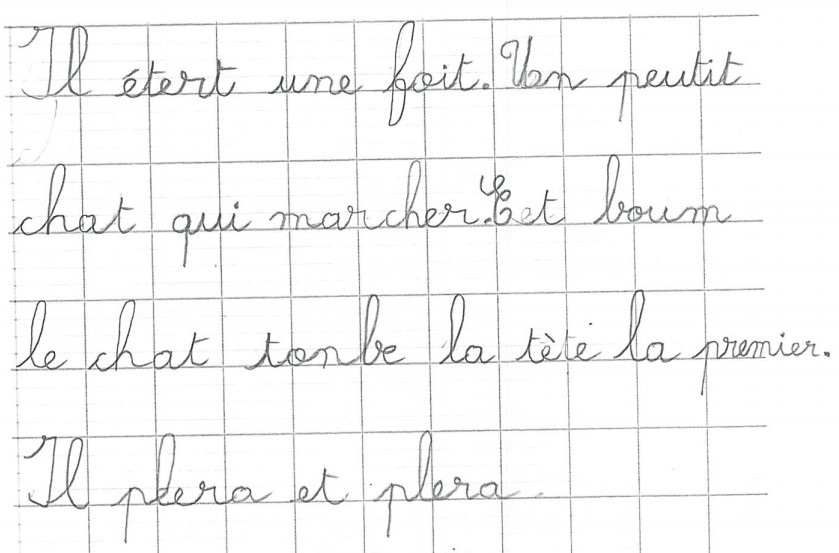 Il étert une foit. Un peutit
chat qui marcher. Eet boum
le chat tonbe la tèté la premier.
Il plera et plera.